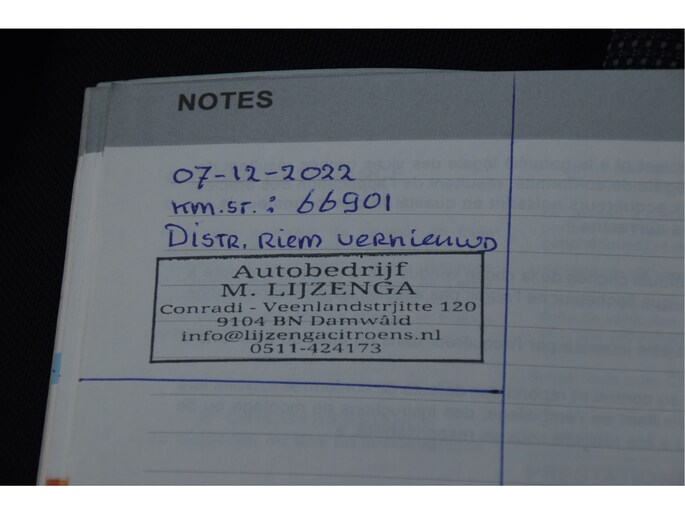 NOTES
07-12-2022
KM.ST.: 66901
DISTR. RIEM VERNIEUWD
Autobedrijf
M. LIJZENGA
Conradi - Veenlandstrjitte 120
9104 BN Damwâld
info@lijzengacitroens.nl
0511-424173